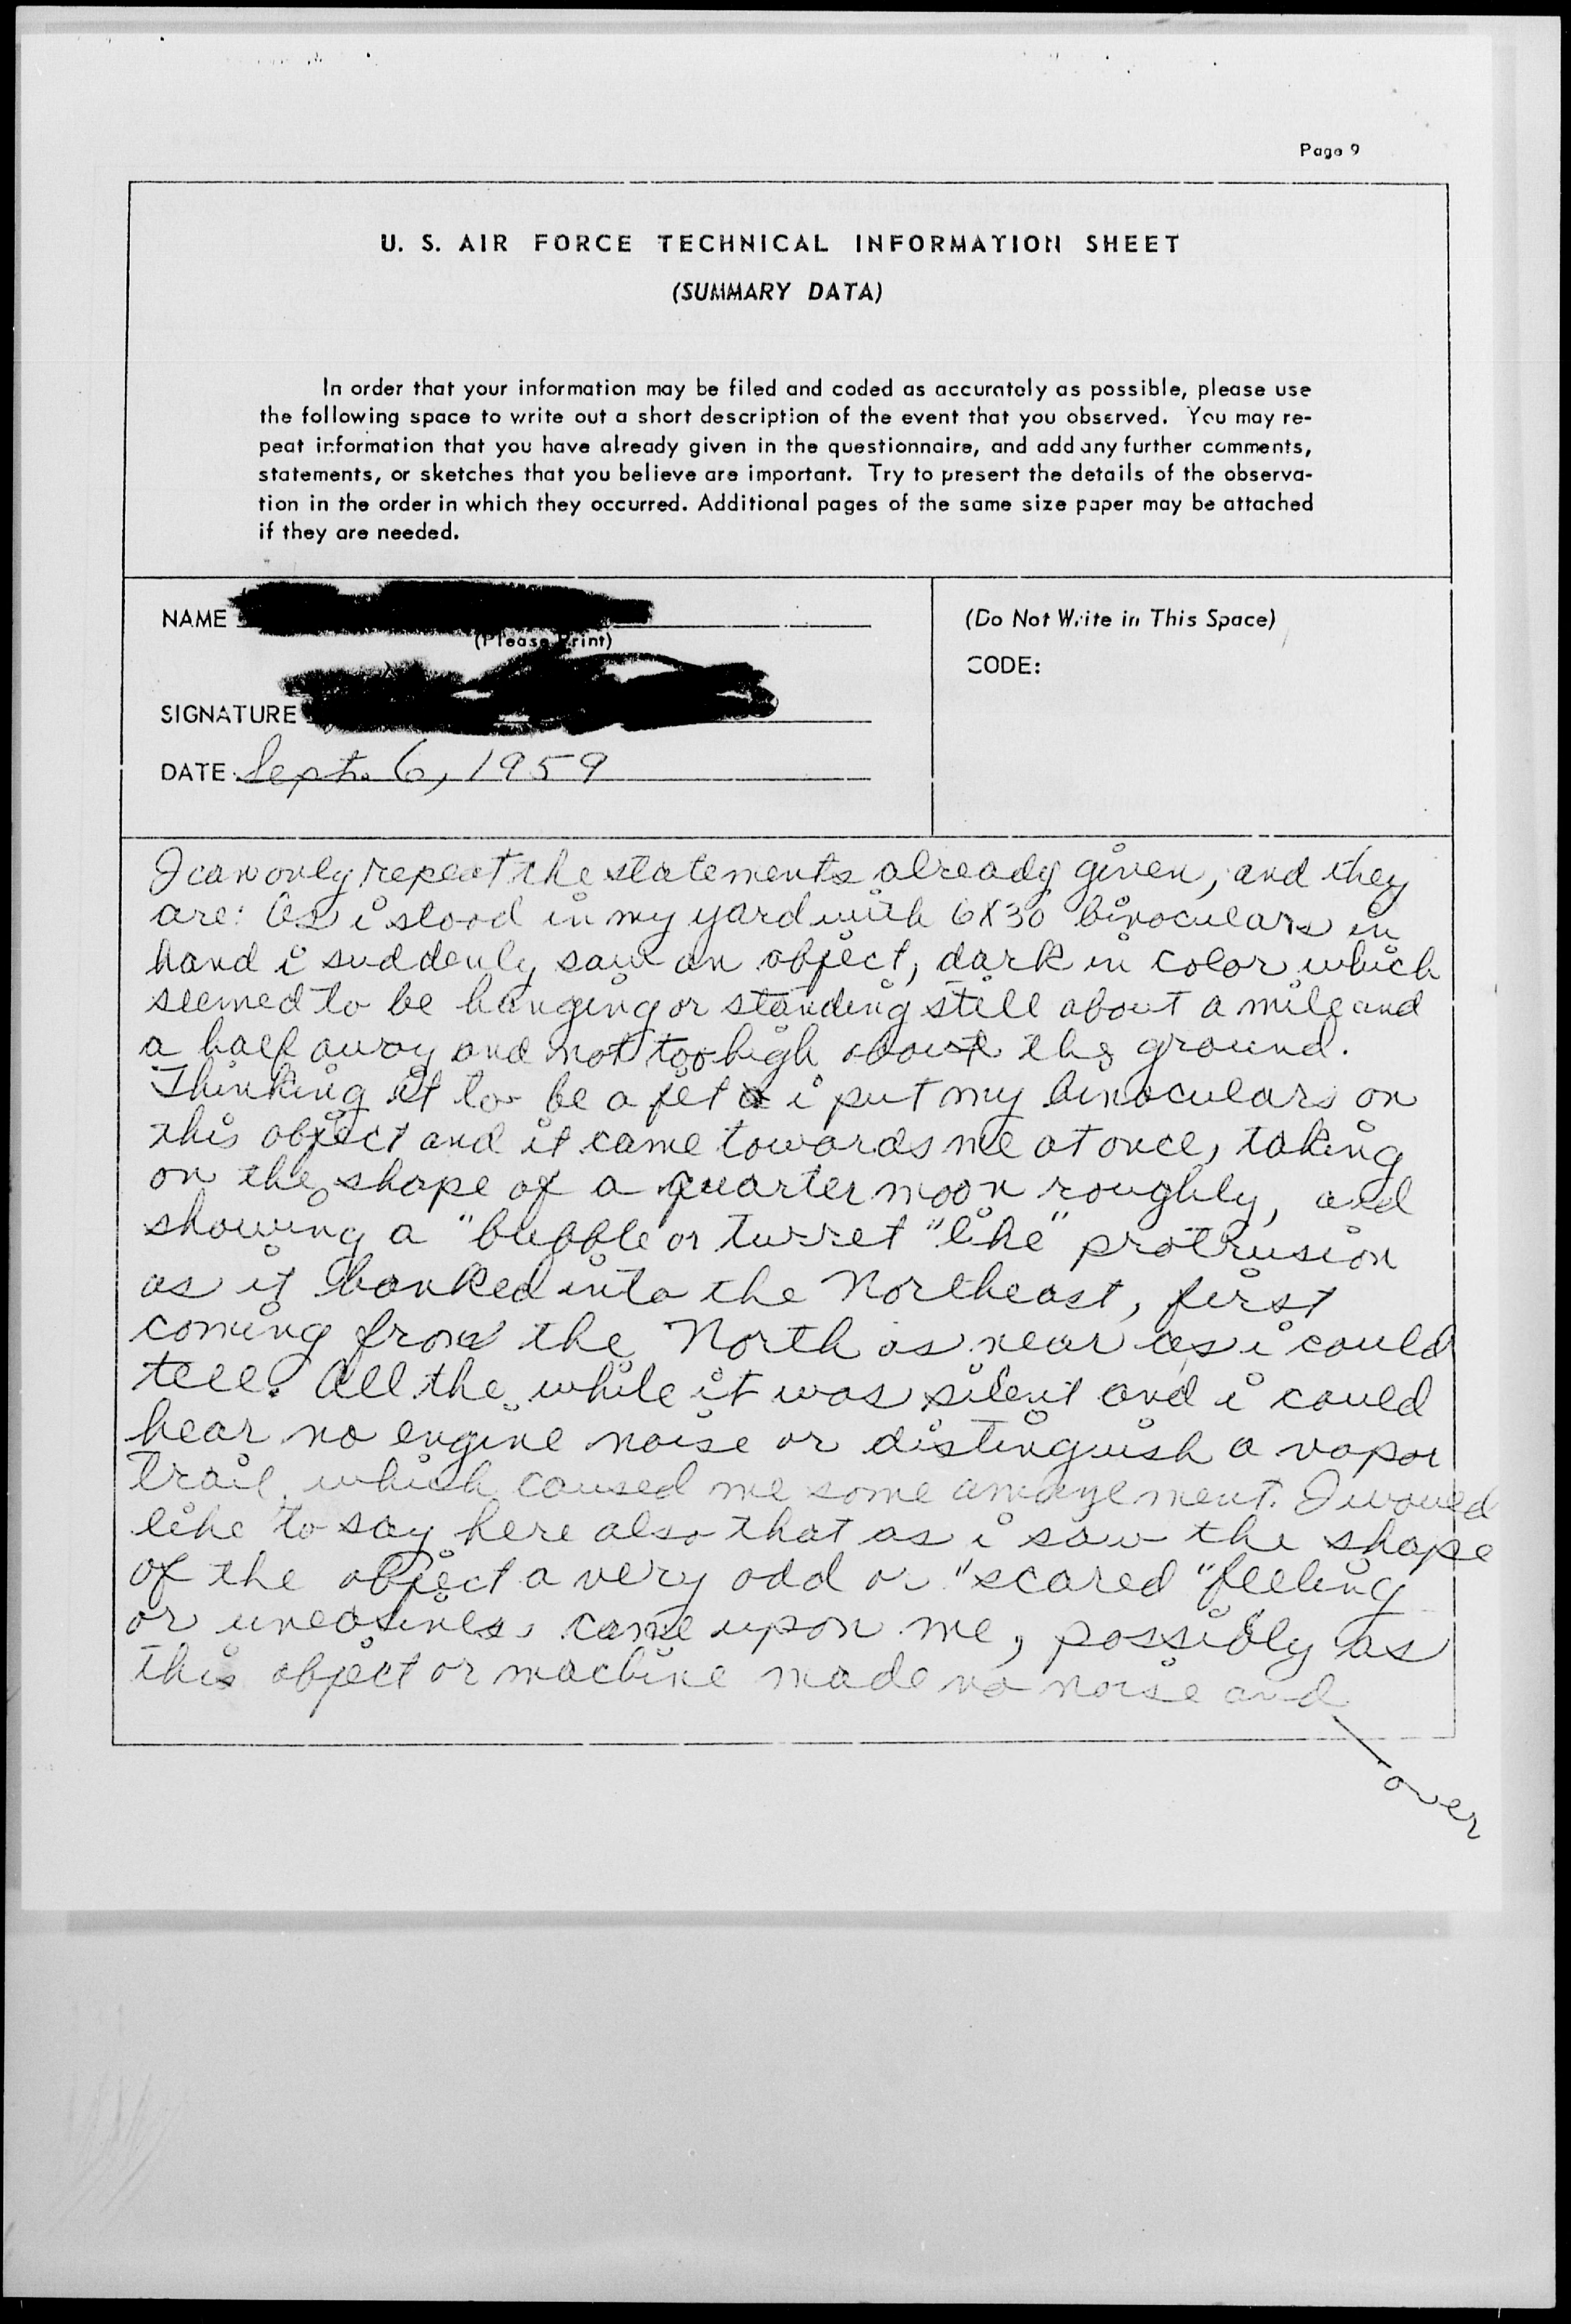 Page 9
U. S. AIR FORCE TECHNICAL INFORMATION SHEET
(SUMMARY DATA)
In order that your information may be filed and coded as accurately as possible, please use
the following space to write out a short description of the event that you observed. You may re-
peat information that you have already given in the questionnaire, and add any further comments,
statements, or sketches that you believe are important. Try to present the details of the observa-
tion in the order in which they occurred. Additional pages of the same size paper may be attached
if they are needed.
NAME
(Please Print)
SIGNATURE
DATE Sept. 6, 1959
(Do Not Write in This Space)
CODE:
I can only repeat the statements already given, and they
are: As i stood in my yard with 6X30 binoculars in
hand i suddenly saw an object, dark in color which
seemed to be hanging or standing still about a mile and
a half away and not too high above the ground.
Thinking it to be a jet i put my binoculars on
this object and it came towards me at once, taking
on the shape of a quarter moon roughly, and
showing a "bubble or turret "like" protrusion
as it banked into the Northeast, first
coming from the North as near as i could
tell. All the while it was silent and i could
hear no engine noise or distinguish a vapor
trail which caused me some amazement. I would
like to say here also that as i saw the shape
of the object a very odd or "scared" feeling
or uneasines came upon me, possibly as
this object or machine made no noise and
over